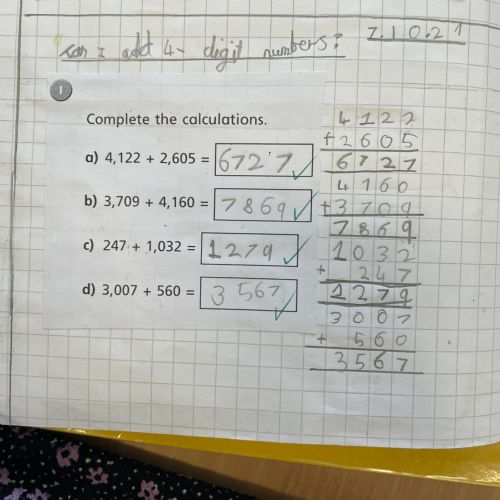 can I add 4- digit numbers? 7.10.21
1
Complete the calculations.
a) 4,122 + 2,605 = 6727
b) 3,709 + 4,160 = 7869
c) 247 + 1,032 = 1279
d) 3,007 + 560 = 3567
4122
+2605
6727
4160
+3709
7869
1032
+ 247
1279
3007
+ 560
3567